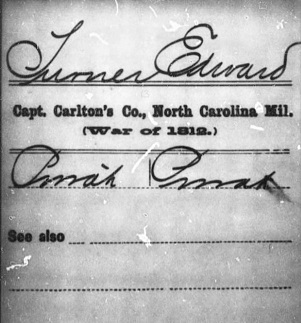 Turner Edward
Capt. Carlton's Co., North Carolina Mil.
(War of 1812.)
Privat | Privat
See also